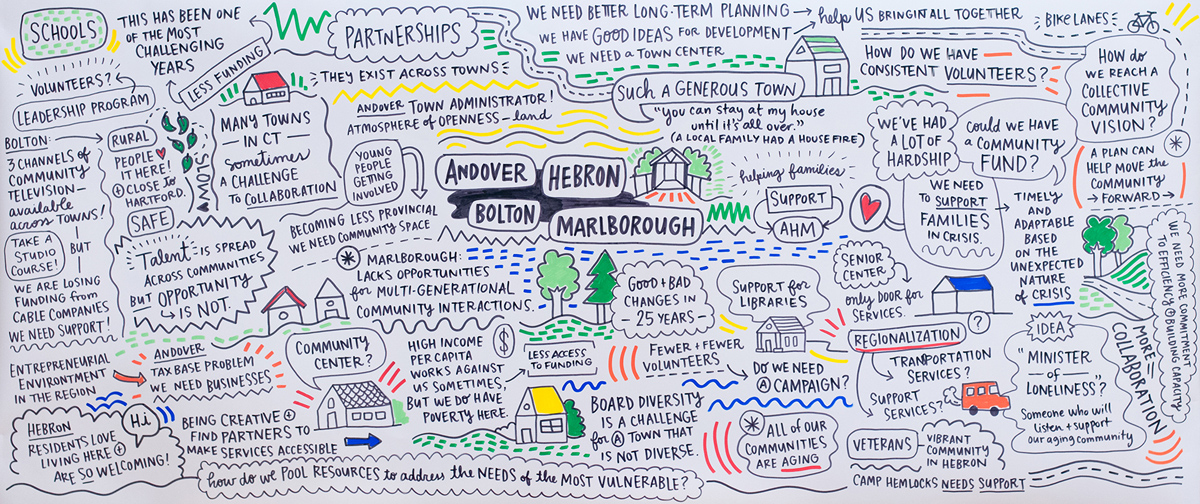 SCHOOLS
THIS HAS BEEN ONE
OF THE MOST
CHALLENGING
YEARS
LESS FUNDING
PARTNERSHIPS
THEY EXIST ACROSS TOWNS
WE NEED BETTER LONG-TERM PLANNING → help US BRING IT ALL TOGETHER
WE HAVE GOOD IDEAS FOR DEVELOPMENT
WE NEED A TOWN CENTER
BIKE LANES
HOW DO WE HAVE
CONSISTENT VOLUNTEERS?
HOW do
WE REACH A
COLLECTIVE
COMMUNITY
VISION?
VOLUNTEERS?
LEADERSHIP PROGRAM
BOLTON:
3 CHANNELS OF
COMMUNITY
TELEVISION—
available
across TOWNS!
TAKE A
STUDIO
COURSE!
BUT
WE ARE LOSING
FUNDING from
CABLE COMPANIES
WE NEED SUPPORT!
RURAL
PEOPLE
♥ IT HERE!
⊕ CLOSE to
HARTFORD.
SAFE
MANY TOWNS
IN CT —
sometimes
A CHALLENGE
to COLLABORATION
ANDOVER TOWN ADMINISTRATOR!
ATMOSPHERE OF OPENNESS — land
YOUNG
PEOPLE
GETTING
INVOLVED
SUCH A GENEROUS TOWN
"you can stay at my house
until it's all over."
(A LOCAL FAMILY HAD A HOUSE FIRE)
WE'VE HAD
A LOT OF
HARDSHIP
COULD WE HAVE
a COMMUNITY
FUND?
HELP PLAN CAN
HELP MOVE THE
COMMUNITY
→ FORWARD →
ANDOVER
HEBRON
BOLTON
MARLBOROUGH
helping families
SUPPORT
AHM
WE NEED
to SUPPORT
FAMILIES
IN CRISIS.
TIMELY
AND
ADAPTABLE
BASED
ON THE
UNEXPECTED
NATURE
of CRISIS
WE NEED MORE COMMITMENT
TO EFFICIENCY ⊕ BUILDING CAPACITY
MORE =
COLLABORATION
Talent IS SPREAD
ACROSS COMMUNITIES
BUT OPPORTUNITY
↳ IS NOT.
BECOMING LESS PROVINCIAL
WE NEED COMMUNITY SPACE
* MARLBOROUGH:
LACKS OPPORTUNITIES
for MULTI-GENERATIONAL
COMMUNITY INTERACTIONS.
GOOD + BAD
CHANGES IN
- 25 YEARS -
SUPPORT for
LIBRARIES
SENIOR
CENTER
only DOOR for
SERVICES.
REGIONALIZATION
?
TRANSPORTATION
SERVICES?
SUPPORT
SERVICES?
IDEA
"MINISTER
- of -
LONELINESS"?
Someone who will
listen + support
our aging community
ENTREPRENEURIAL
ENVIRONTMENT
IN THE REGION
ANDOVER
TAX BASE PROBLEM
WE NEED BUSINESSES
COMMUNITY
CENTER?
HIGH INCOME
PER CAPITA
WORKS AGAINST
US SOMETIMES,
BUT WE DO HAVE
POVERTY HERE.
$
LESS ACCESS
TO FUNDING
FEWER + FEWER
VOLUNTEERS
DO WE NEED
Ⓐ CAMPAIGN?
HEBRON
RESIDENTS LOVE
LIVING HERE ⊕
ARE SO WELCOMING!
Hi
BEING CREATIVE ⊕
FIND PARTNERS TO
MAKE SERVICES ACCESSIBLE
BOARD DIVERSITY
IS A CHALLENGE
for Ⓐ TOWN THAT
IS NOT DIVERSE.
* ALL OF OUR
COMMUNITIES
ARE AGING
VETERANS
VIBRANT
COMMUNITY
IN HEBRON
CAMP HEMLOCKS NEEDS SUPPORT
how do we POOL RESOURCES to address the NEEDS of the MOST VULNERABLE?